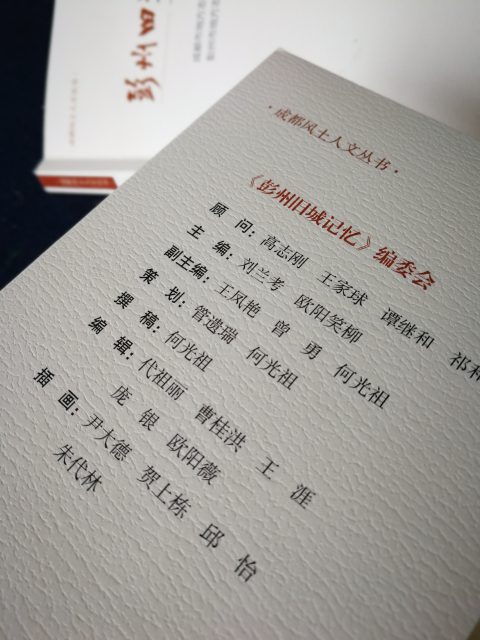 彭州旧
·成都风土人文丛书·
《彭州旧城记忆》编委会
顾 问：高志刚 王家球 谭继和 祁和
主 编：刘兰考 欧阳笑柳
副主编：王凤艳 曾 勇 何光祖
策 划：管遗瑞 何光祖
撰 稿：何光祖
编 辑：代祖丽 曹桂洪 王 涯
庞 银 欧阳薇
插 画：尹大德 贺上栋 邱 怡
朱代林